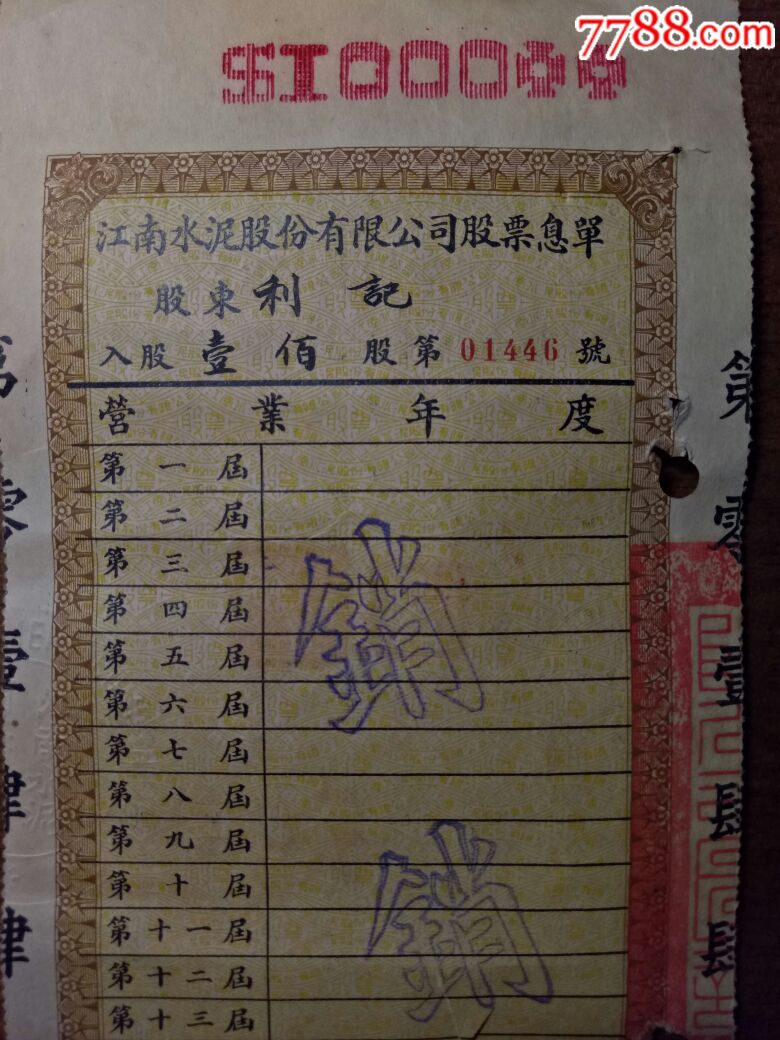 7788.com
$100000
江南水泥股份有限公司股票息單
股東 利記
入股 壹佰 股 第 01446 號
營業年度
第一屆
第二屆
第三屆
第四屆
第五屆
第六屆
第七屆
第八屆
第九屆
第十屆
第十一屆
第十二屆
第十三屆
銷
銷
第零壹肆肆
第零壹肆肆